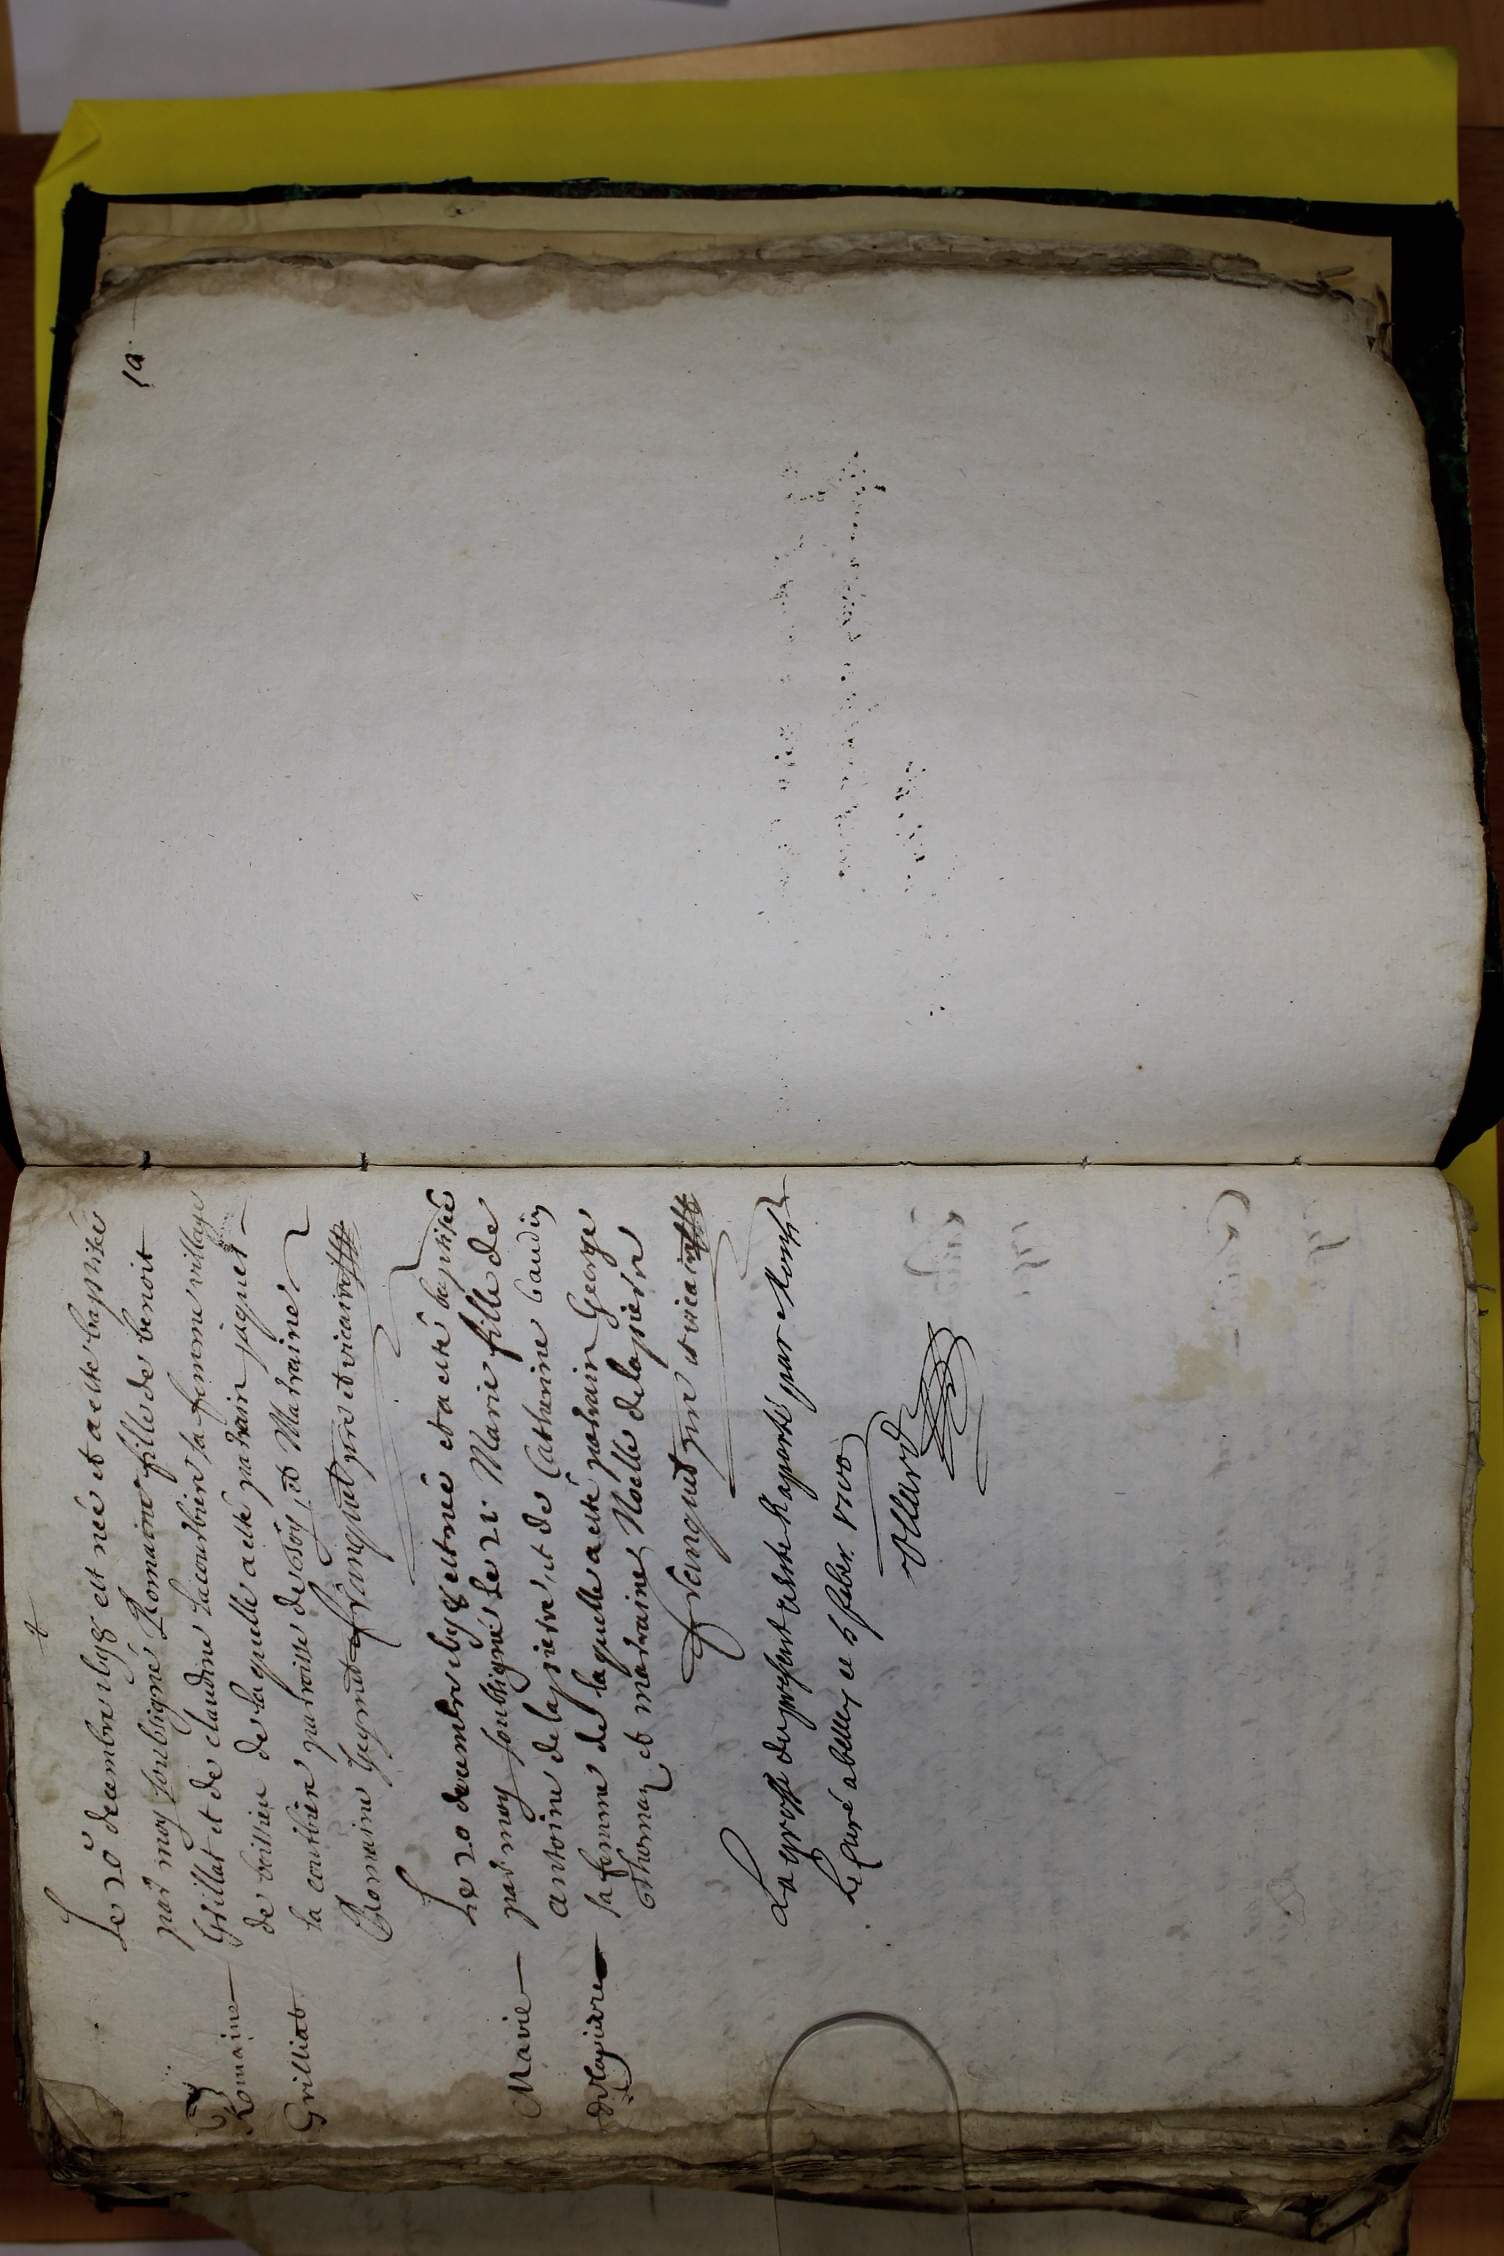 Romaine
Grilliat
Le 20 decembre 1698 est née et a esté baptisée
par moy soubsigné Romaine fille de benoit
Grilliat et de claudine Lacourbiere sa femme village
de boissieu de laquelle a esté parrain jaques
la courbiere parroisse de et Marraine
Romaine franguet pre et vicaire
Marie
delapierre
Le 20 decembre 1698 est née et a esté baptisée
par moy soubsigné le 21 Marie fille de
antoine delapierre, et de Catherine baudin
sa femme de laquelle a esté parrain George
Thomas et marraine Noelle delapierre
franguet pre et vicaire
La grosse du present a esté raportée par
Le Curé ce 5 feber. 1700
Vollard
10